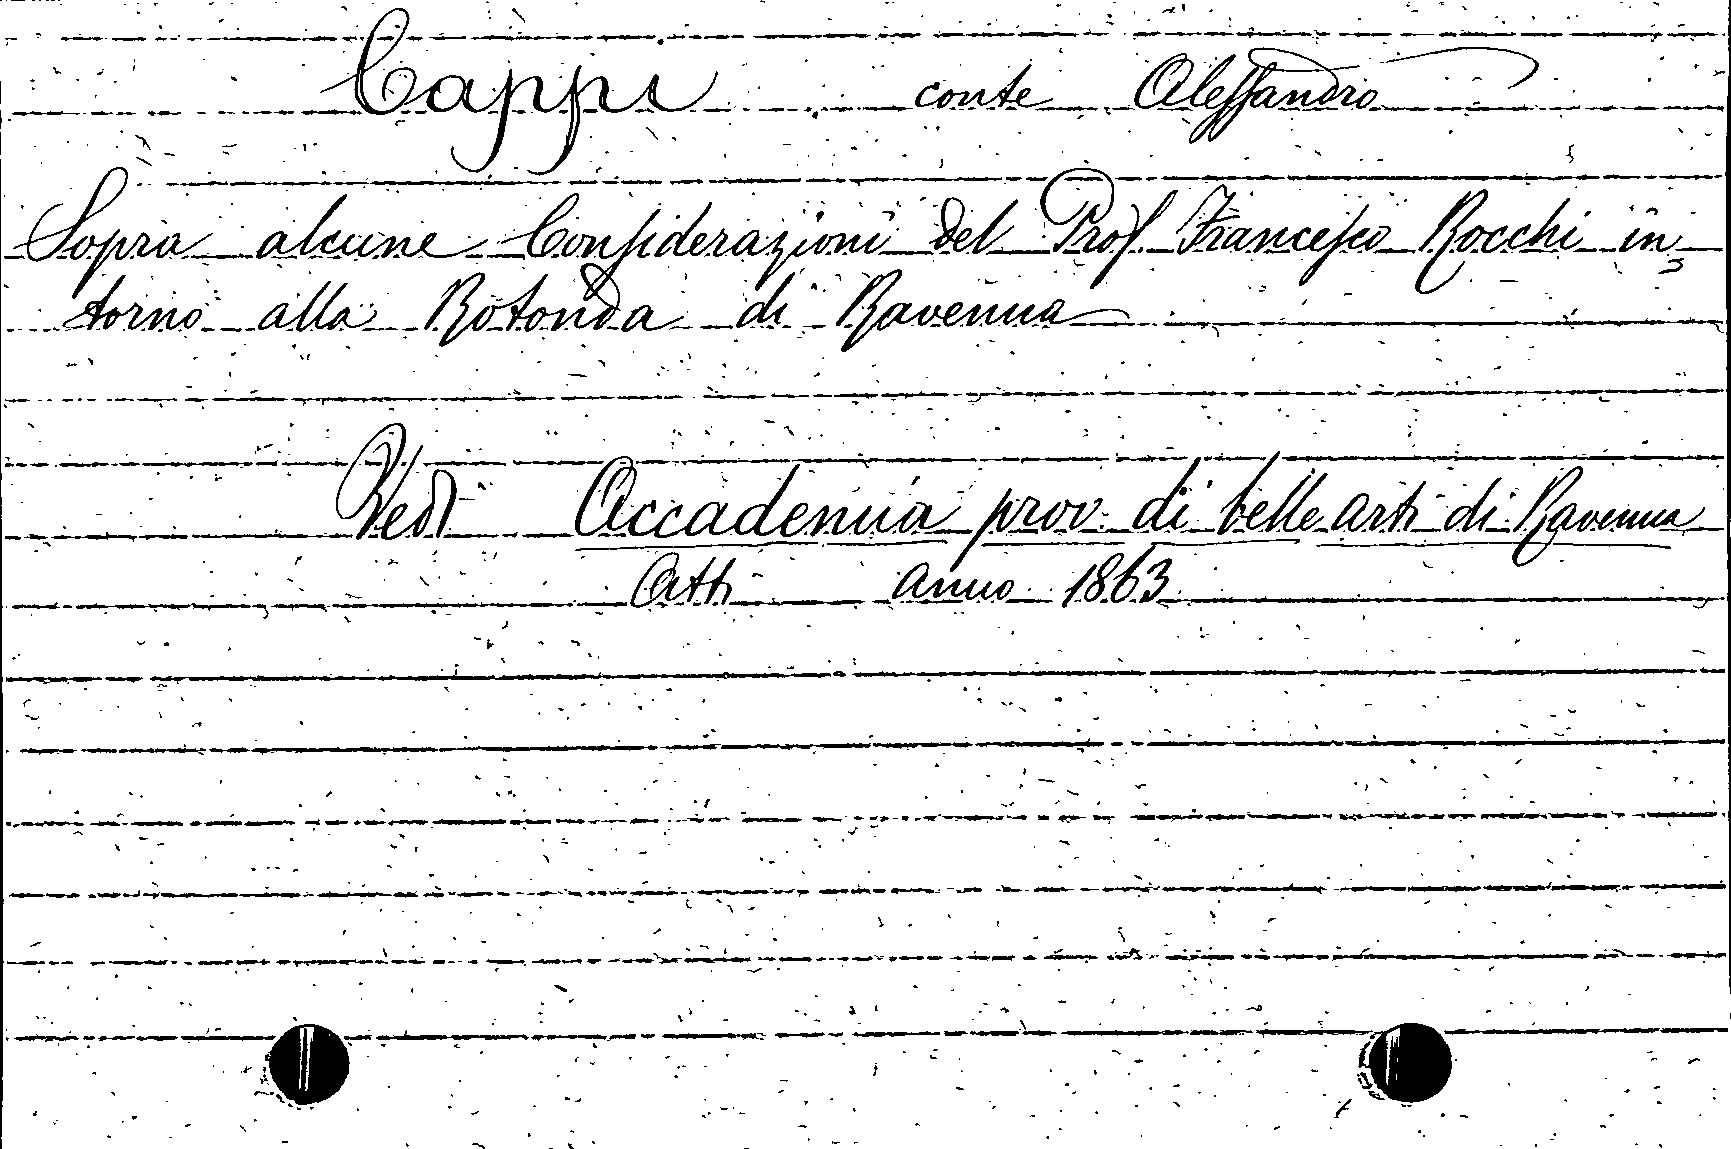 Cappi conte Alessandro
Sopra alcune Considerazioni del Prof Francesco Rocchi in
torno alla Rotonda di Ravenna
Vedi Accademia prov. di belle arti di Ravenna
Atti anno 1863